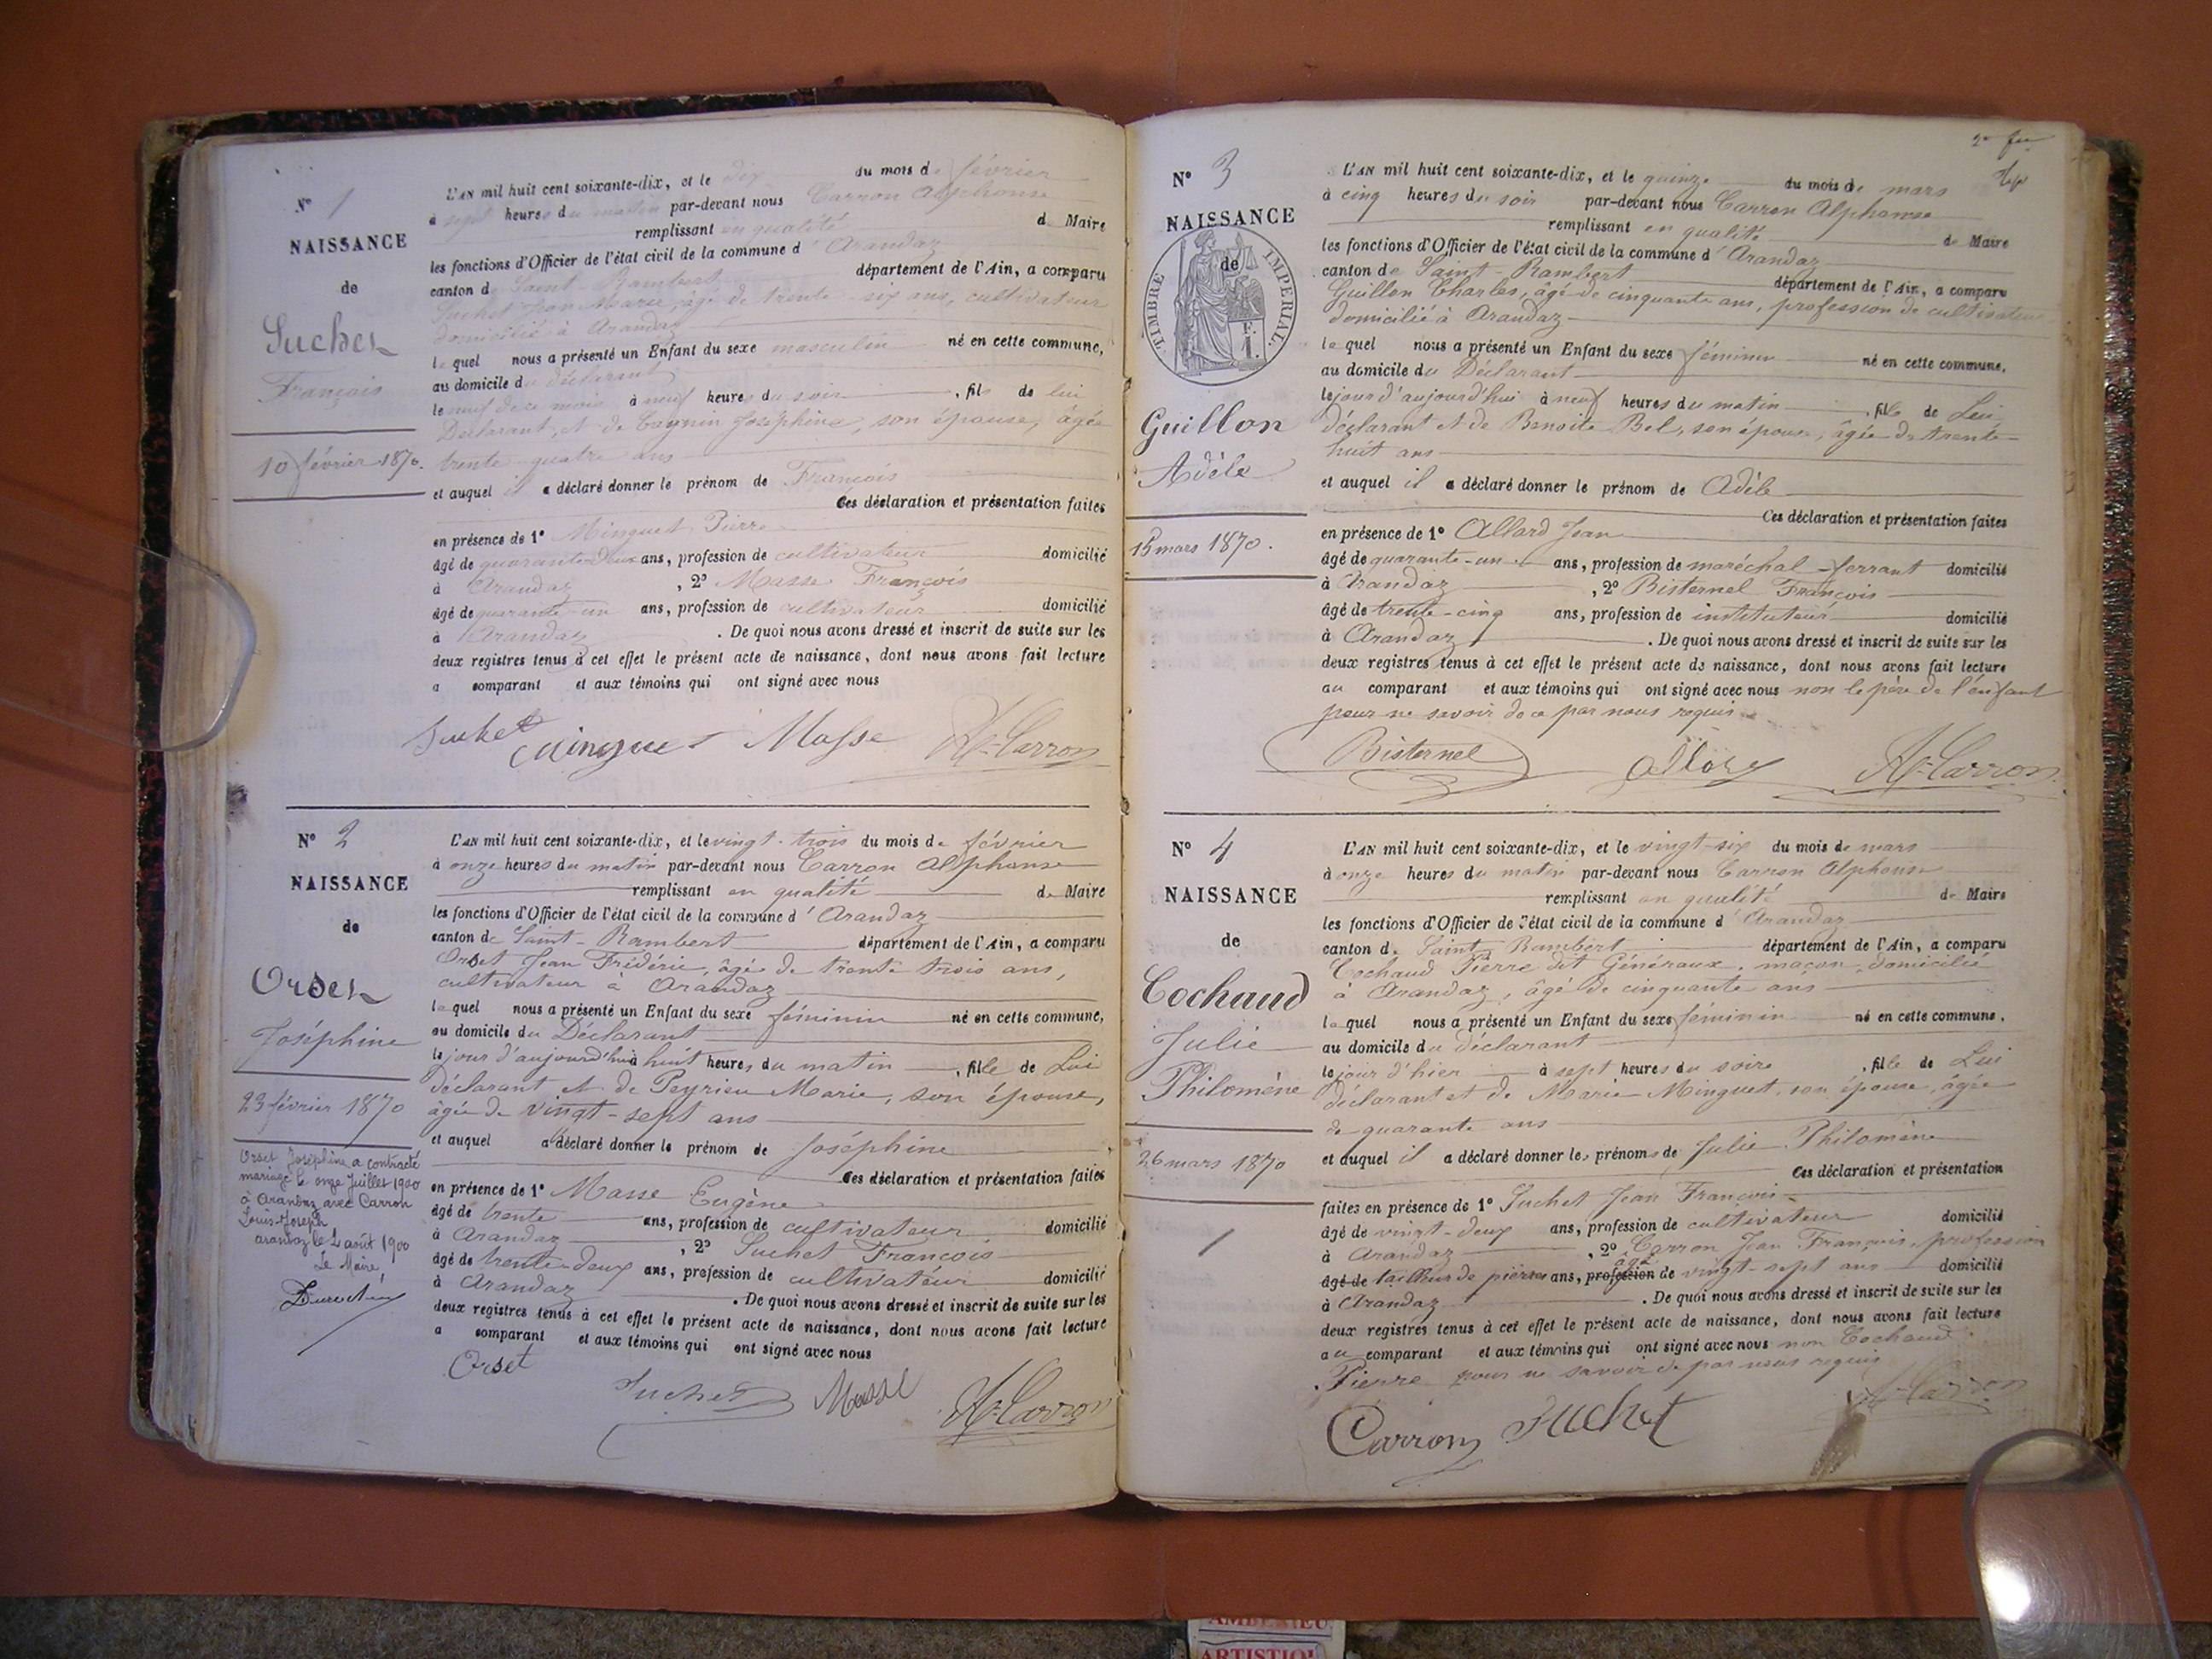 N° 1
NAISSANCE
de
Suchet
François
10 février 1870.
L'AN mil huit cent soixante-dix, et le dix du mois de février
à sept heures du matin par-devant nous Carron Alphonse
remplissant en qualité de Maire
les fonctions d'Officier de l'état civil de la commune d'Arandaz
canton de Saint-Rambert département de l'Ain, a comparu
Suchet Jean Marie, âgé de trente-six ans, cultivateur
domicilié à Arandaz
lequel nous a présenté un Enfant du sexe masculin né en cette commune,
au domicile du déclarant
le neuf de ce mois à neuf heures du soir, fils de lui
Déclarant, et de Joséphine, son épouse, âgée
trente-quatre ans
et auquel il a déclaré donner le prénom de François
Ces déclaration et présentation faites
en présence de 1° Minguet Pierre
âgé de quarante-deux ans, profession de cultivateur domicilié
à Arandaz, 2° Masse François
âgé de quarante-un ans, profession de cultivateur domicilié
à Arandaz. De quoi nous avons dressé et inscrit de suite sur les
deux registres tenus à cet effet le présent acte de naissance, dont nous avons fait lecture
a comparant et aux témoins qui ont signé avec nous
Suchet Minguet Masse A. Carron
N° 2
NAISSANCE
de
Orset
Joséphine
23 février 1870
Orset Joséphine a contracté
mariage le onze Juillet 1900
à Arandaz avec Carron
Louis-Joseph
Arandaz le 2 août 1900
Le Maire,
L'AN mil huit cent soixante-dix, et le vingt-trois du mois de février
à onze heures du matin par-devant nous Carron Alphonse
remplissant en qualité de Maire
les fonctions d'Officier de l'état civil de la commune d'Arandaz
canton de Saint-Rambert département de l'Ain, a comparu
Orset Jean Frédéric, âgé de trente trois ans,
cultivateur à Arandaz
lequel nous a présenté un Enfant du sexe féminin né en cette commune,
au domicile du Déclarant
le jour d'aujourd'hui à huit heures du matin, fille de Lui
déclarant et de Peyrieu Marie, son épouse,
âgée de vingt-sept ans
et auquel a déclaré donner le prénom de Joséphine
Ces déclaration et présentation faites
en présence de 1° Masse Eugène
âgé de trente ans, profession de cultivateur domicilié
à Arandaz, 2° Suchet François
âgé de trente-deux ans, profession de cultivateur domicilié
à Arandaz. De quoi nous avons dressé et inscrit de suite sur les
deux registres tenus à cet effet le présent acte de naissance, dont nous avons fait lecture
a comparant et aux témoins qui ont signé avec nous
Orset Suchet Masse A. Carron
N° 3
NAISSANCE
de
TIMBRE IMPERIAL.
Guillon
Adèle
15 mars 1870.
L'AN mil huit cent soixante-dix, et le quinze du mois de mars
à cinq heures du soir par-devant nous Carron Alphonse
remplissant en qualité de Maire
les fonctions d'Officier de l'état civil de la commune d'Arandaz
canton de Saint-Rambert département de l'Ain, a comparu
Guillon Charles, âgé de cinquante ans, profession de cultivateur
domicilié à Arandaz
lequel nous a présenté un Enfant du sexe féminin né en cette commune,
au domicile du Déclarant
le jour d'aujourd'hui à neuf heures du matin, fille de Lui
déclarant et de Benoite Bel, son épouse, âgée de trente-
huit ans
et auquel il a déclaré donner le prénom de Adèle
Ces déclaration et présentation faites
en présence de 1° Allard Jean
âgé de quarante-un ans, profession de maréchal-ferrant domicilié
à Arandaz, 2° Bisternel François
âgé de trente-cinq ans, profession de instituteur domicilié
à Arandaz. De quoi nous avons dressé et inscrit de suite sur les
deux registres tenus à cet effet le présent acte de naissance, dont nous avons fait lecture
au comparant et aux témoins qui ont signé avec nous non le père de l'enfant
pour ne savoir de ce par nous requis
Bisternel A. Carron
N° 4
NAISSANCE
de
Cochaud
Julie
Philomène
26 mars 1870
L'AN mil huit cent soixante-dix, et le vingt-six du mois de mars
à onze heures du matin par-devant nous Carron Alphonse
remplissant en qualité de Maire
les fonctions d'Officier de l'état civil de la commune d'Arandaz
canton de Saint-Rambert département de l'Ain, a comparu
Cochaud Pierre dit Généraux, maçon, domicilié
à Arandaz, âgé de cinquante ans
lequel nous a présenté un Enfant du sexe féminin né en cette commune,
au domicile du déclarant
le jour d'hier à sept heures du soire, fille de Lui
déclarant et de Marie Minguet, son épouse, âgée
de quarante ans
et auquel il a déclaré donner les prénoms de Julie Philomène
Ces déclaration et présentation
faites en présence de 1° Suchet Jean François
âgé de vingt-deux ans, profession de cultivateur domicilié
à Arandaz, 2° Carron Jean François, profession
âgé de tailleur de pierres ans, profession âgé de vingt-sept ans domicilié
à Arandaz. De quoi nous avons dressé et inscrit de suite sur les
deux registres tenus à cet effet le présent acte de naissance, dont nous avons fait lecture
au comparant et aux témoins qui ont signé avec nous non Cochaud
Pierre pour ne savoir de par nous requis
Carron Suchet A. Carron